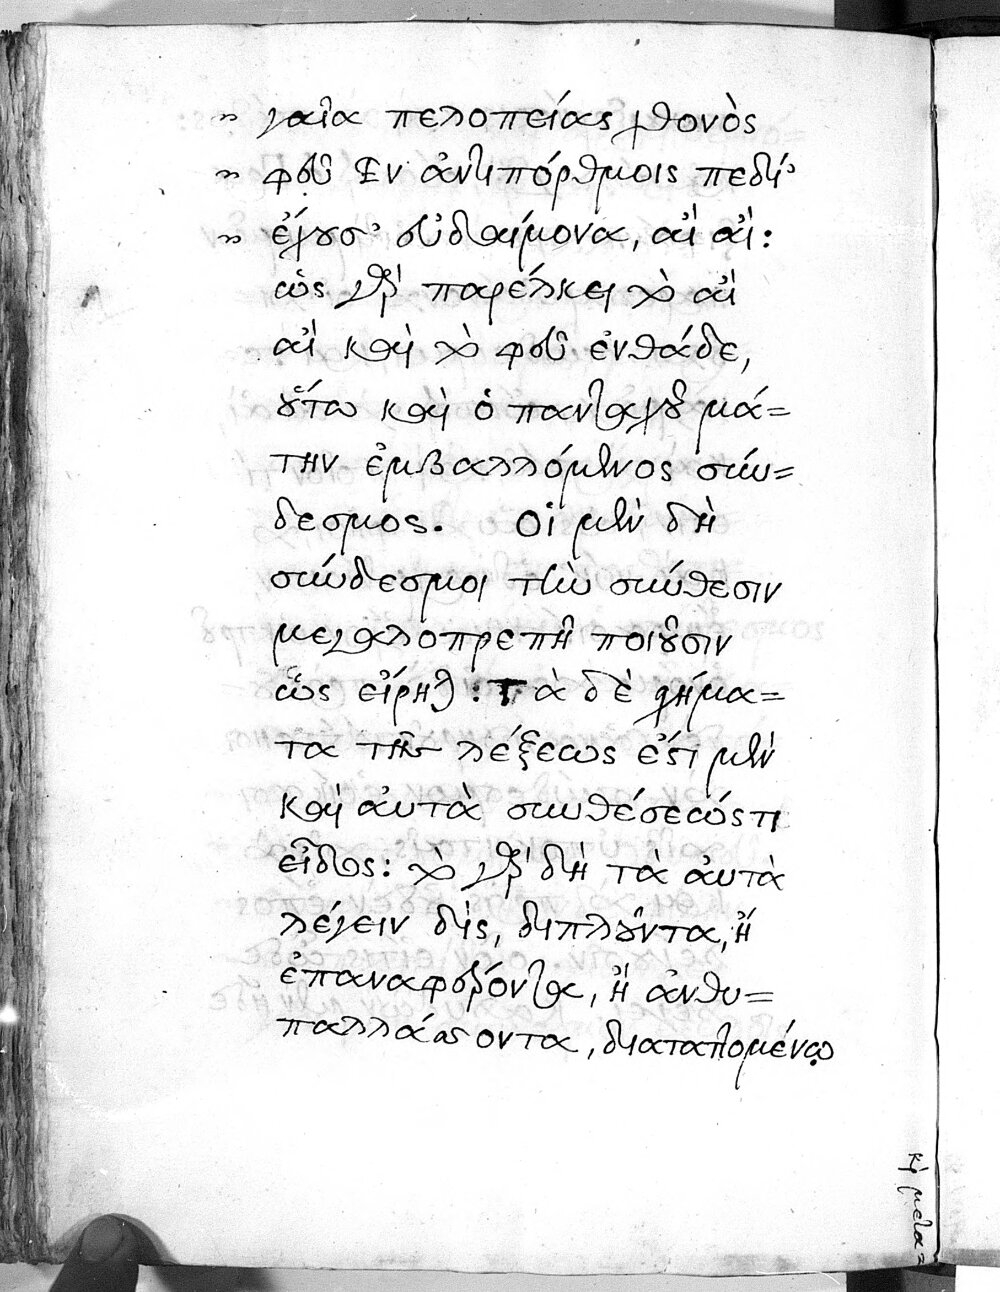 » γαῖα πελοπείας χθονὸς
» φεῦ Ἐν ἀντιπόρθμοις πεδί'
» ἔχουσ' εὐδαίμονα, αἲ αἴ:
ὡς γὰρ παρέλκει τὸ αἲ
αἲ καὶ τὸ φεῦ ἐνθάδε,
οὕτω καὶ ὁ πανταχοῦ μά=
την ἐμβαλλόμενος σύν=
δεσμος. Οἱ μὲν δὴ
σύνδεσμοι τὴν σύνθεσιν
μεγαλοπρεπῆ ποιοῦσιν
ὡς εἴρηται: Τὰ δὲ σχήμα=
τα τῆς λέξεως ἐστὶ μὲν
καὶ αὐτὰ συνθέσεώς τι
εἶδος: τὸ γὰρ δὴ τὰ αὐτὰ
λέγειν δὶς, διπλοῦντα, ἢ
ἐπαναφέροντα, ἢ ἀνθυ=
παλλάσσοντα, διαταττομένῳ
καὶ μετα=